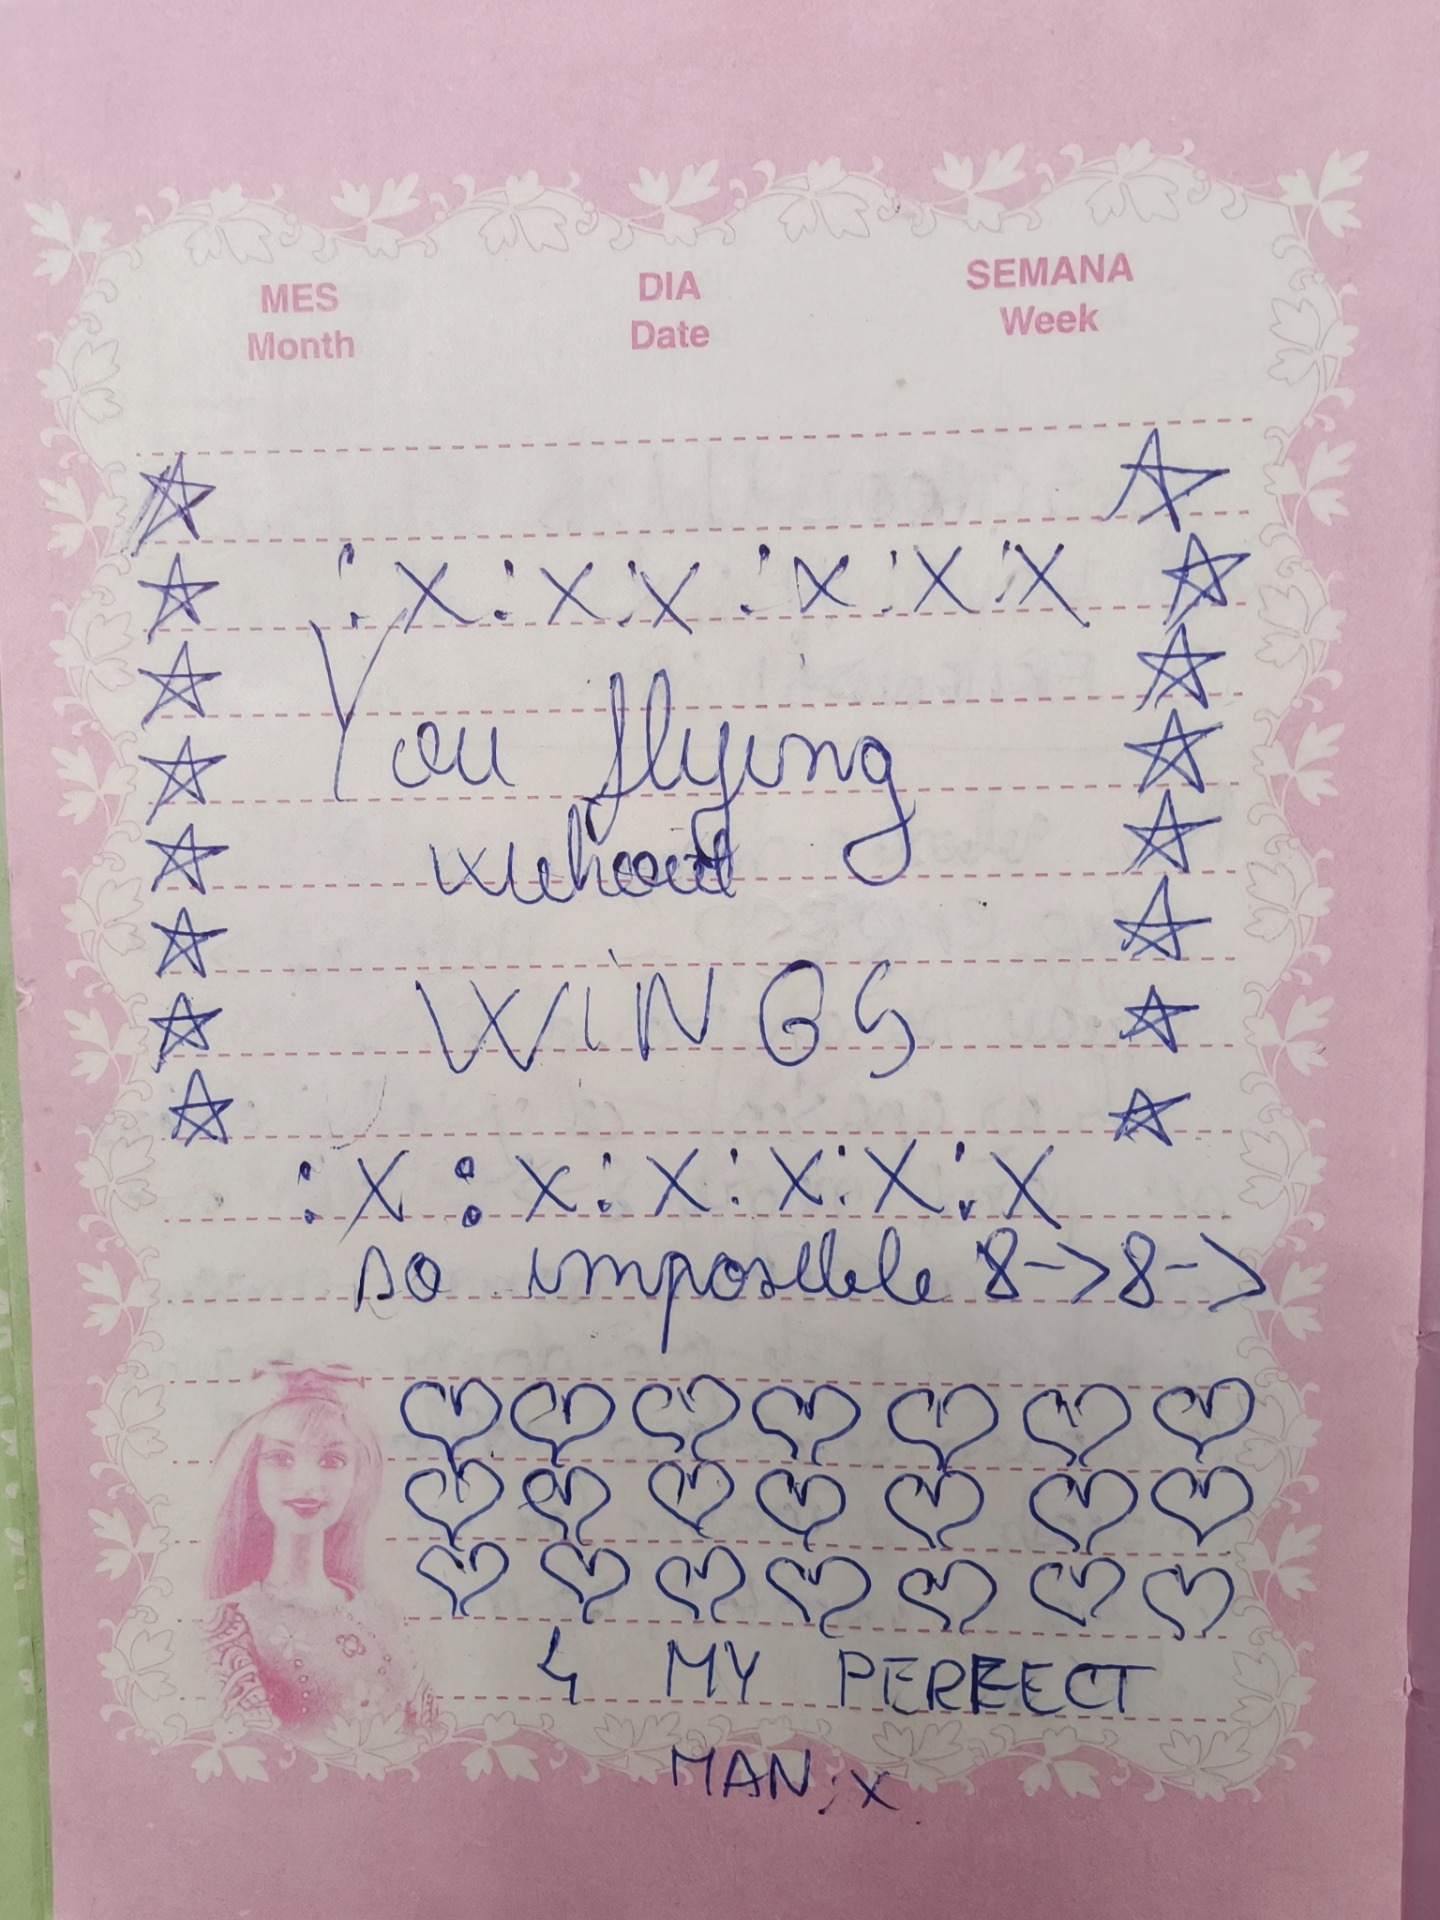 MES DIA SEMANA
Month Date Week
:x:x:x:x:x:x
You flying
without
WINGS
:x:x:x:x:x:x
so impossible 8->8->
4 MY PERFECT
MAN :x